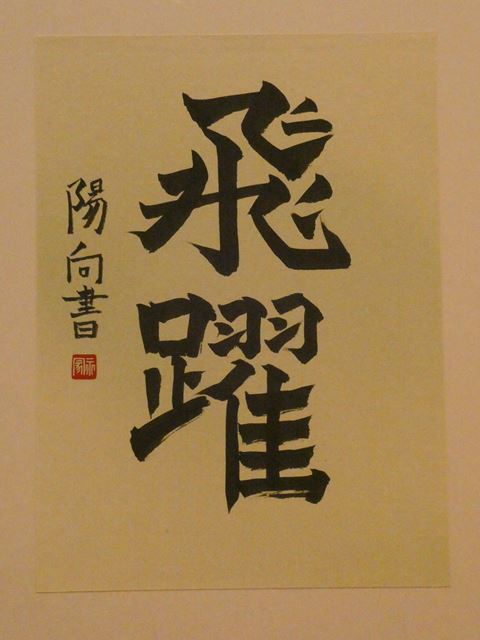 飛躍
陽向書